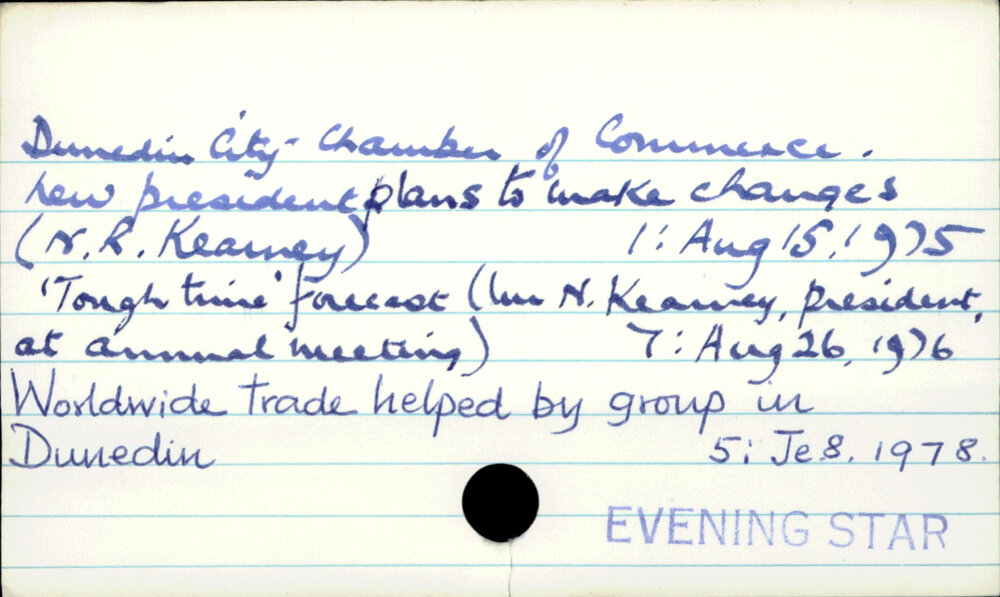 Dunedin City - Chamber of Commerce.
new president plans to make changes
(N.R. Kearney) 1: Aug 15, 1975
'Tough time' forecast (Mr N. Kearney, president,
at annual meeting) 7: Aug 26, 1976
Worldwide trade helped by group in
Dunedin 5: Je 8. 1978.
EVENING STAR